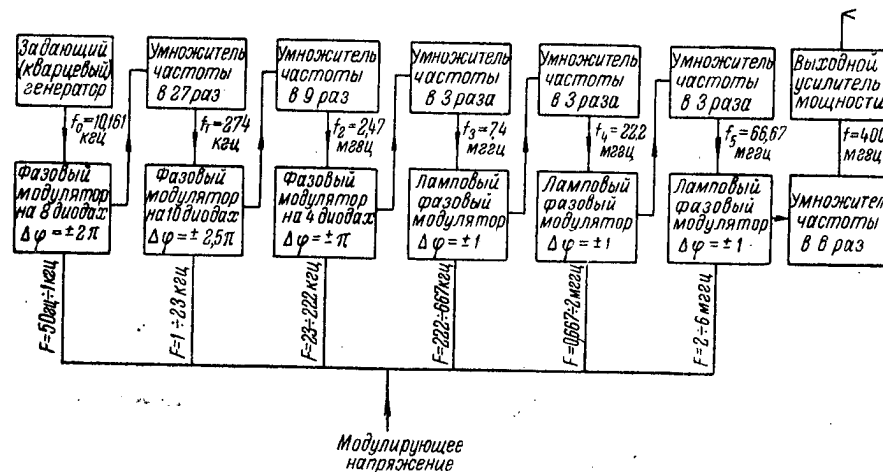 Задающий
(кварцевый)
генератор
Умножитель
частоты
в 27 раз
Умножитель
частоты
в 9 раз
Умножитель
частоты
в 3 раза
Умножитель
частоты
в 3 раза
Умножитель
частоты
в 3 раза
Выходной
усилитель
мощности
f₀=10,161
кгц
f₁=274
кгц
f₂=2,47
мггц
f₃=7,4
мггц
f₄=22,2
мггц
f₅=66,67
мггц
f=400
мггц
Фазовый
модулятор
на 8 диодах
Δφ=±2π
Фазовый
модулятор
на 10 диодах
Δφ=±2,5π
Фазовый
модулятор
на 4 диодах
Δφ=±π
Ламповый
фазовый
модулятор
Δφ=±1
Ламповый
фазовый
модулятор
Δφ=±1
Ламповый
фазовый
модулятор
Δφ=±1
Умножитель
частоты
в 6 раз
F=50гц÷1кгц
F=1÷23кгц
F=23÷222кгц
F=222÷667кгц
F=0,667÷2мггц
F=2÷6мггц
Модулирующее
напряжение